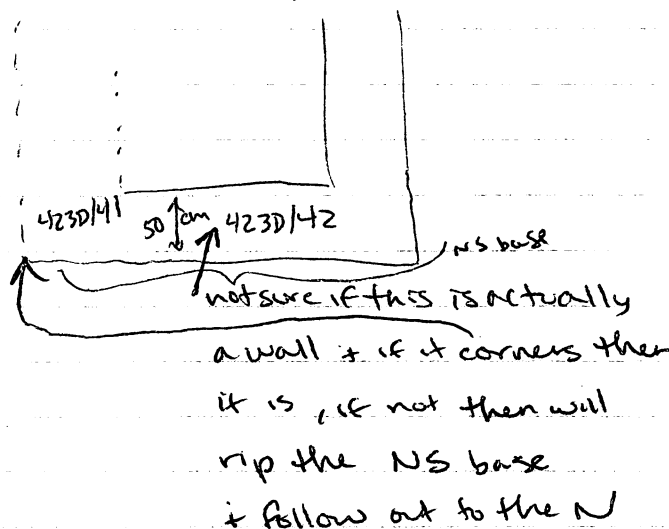 423D/41
50 cm
423D/42
NS base
not sure if this is actually
a wall + if it corners then
it is, if not then will
rip the NS base
+ follow out to the N